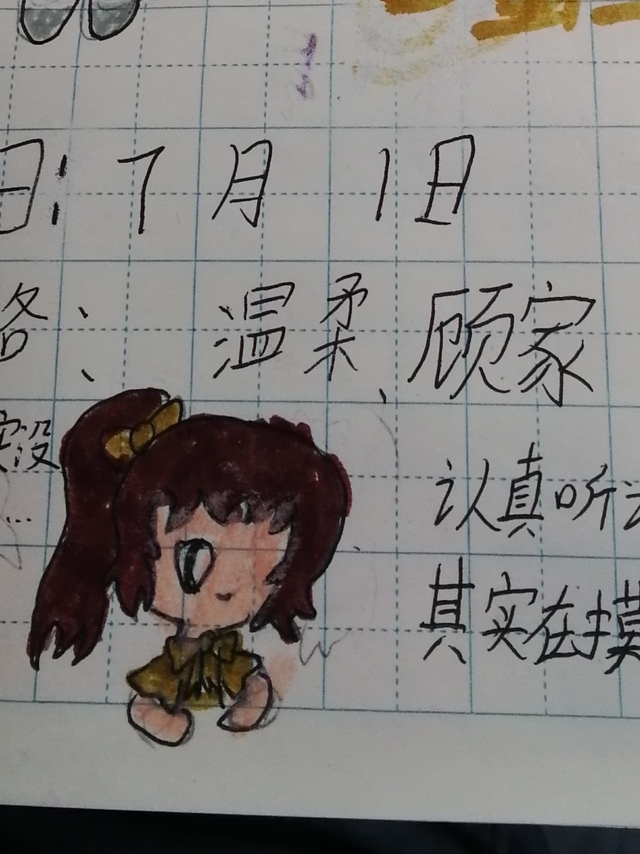 日:7月 1日
温柔、顾家
没
...
认真听
其实在摸